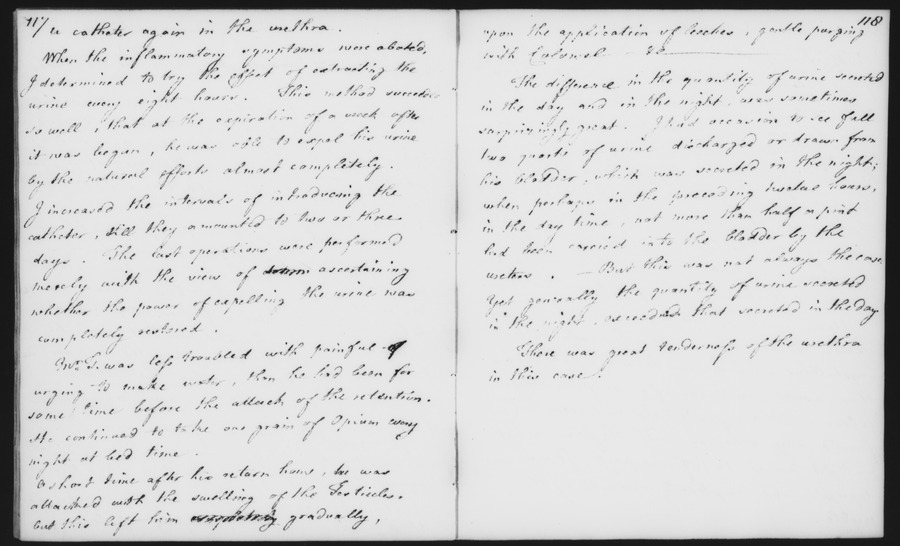 117
a catheter again in the urethra.
When the inflammatory symptoms were abated,
I determined to try the effect of extracting the
urine every eight hours. This method succeeded
so well, that at the expiration of a week after
it was began, he was able to expel his urine
by the natural efforts almost completely.
I increased the intervals of introducing the
catheter, till they amounted to two or three
days. The last operations were performed
merely with the view of ascertaining
whether the power of expelling the urine was
completely restored.
Mr. S. was less troubled with painful
urging to make water, than he had been for
some time before the attack of the retention.
He continued to take one grain of Opium every
night at bed time.
A short time after his return home, he was
attacked with the swelling of the Testicles.
but this left him completely gradually,
118
upon the application of leeches, gentle purging
with Calomel
The difference in the quantity of urine secreted
in the day and in the night, was sometimes
surprisingly great. I had occasion to see full
two quarts of urine discharged or drawn from
his bladder, which was secreted in the night;
when perhaps in the preceeding twelve hours,
in the day time, not more than half a pint
had been carried into the bladder by the
ureters. — But this was not always the case,
Yet generally the quantity of urine secreted
in the night, exceeded that secreted in the day
There was great tenderness of the urethra
in this case.